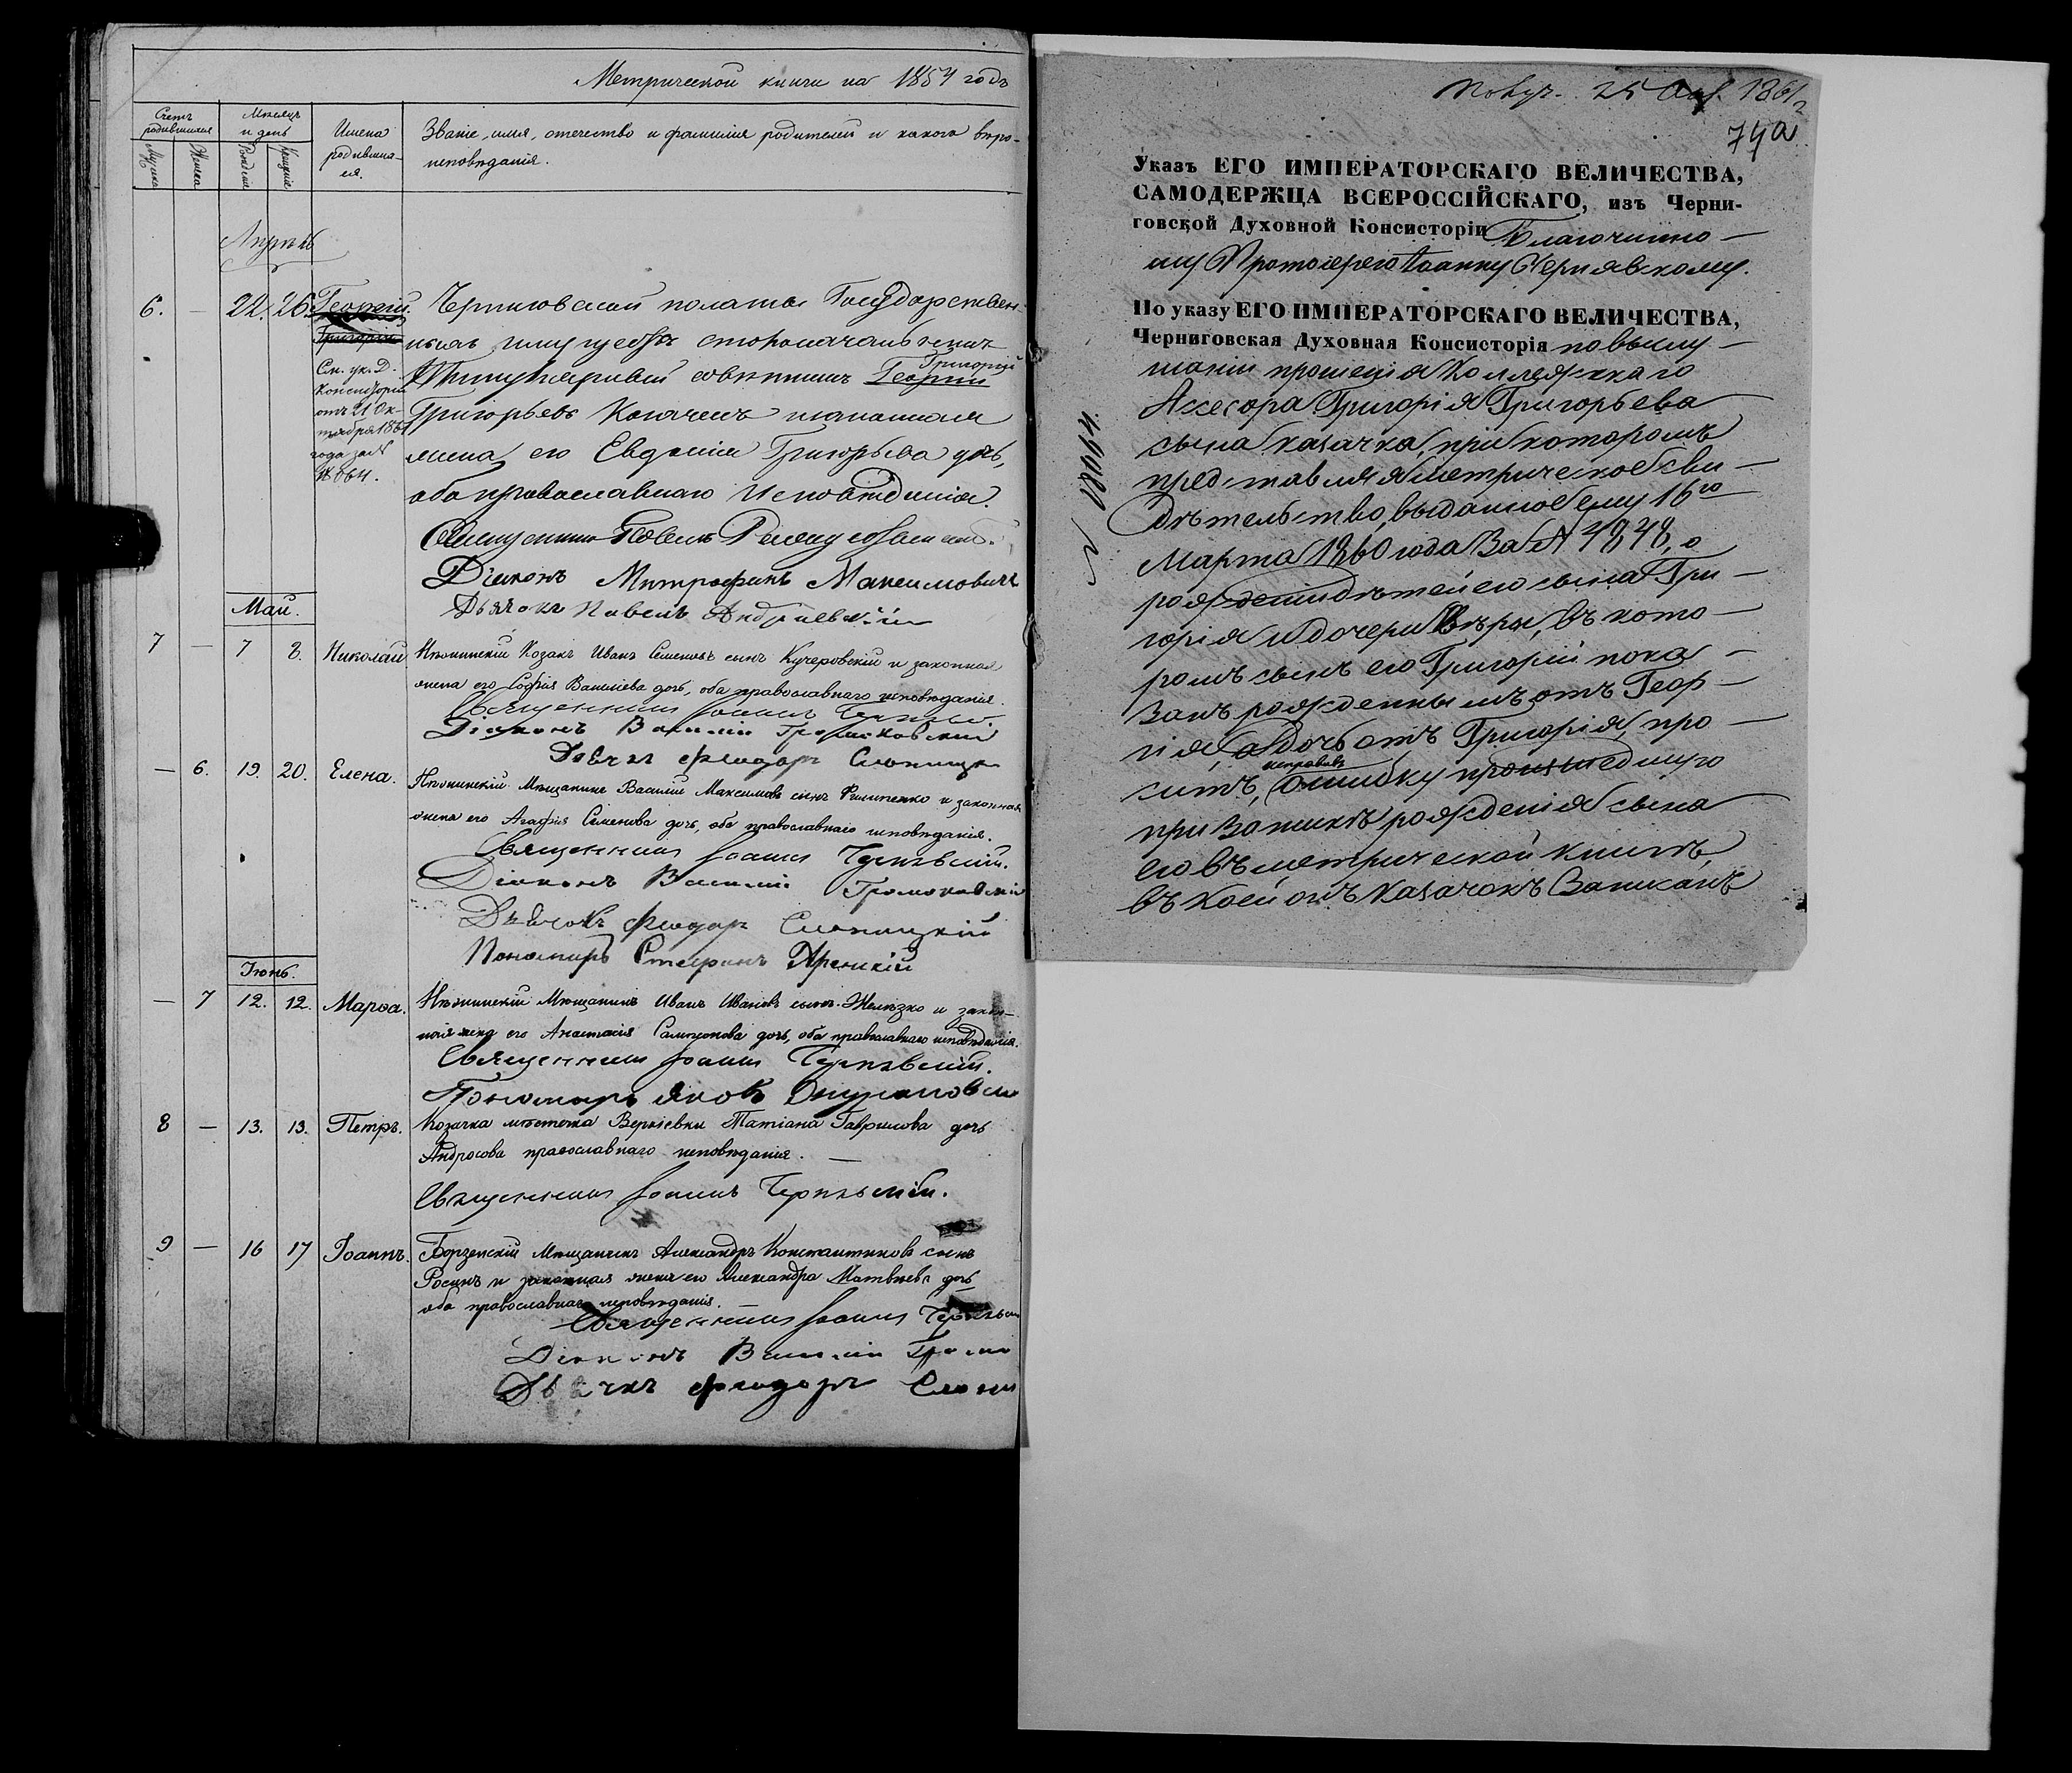 Метрической книги на 1854 годъ
Счетъ родившихся
Мѣсяцъ и день
Имена родившихся.
Званіе, имя, отечество и фамилія родителей и какого вѣроисповѣданія.
Мужска
Женска
Рожденія
Крещенія
Апрѣль
6. — 22. 26. Георгій.
Григорій
См. ук. Д.
Консисторіи
отъ 21 Ок-
тября 1861
года за №
Черниговской полаты Государствен-
ныхъ имуществъ
совѣтникъ Георгій
Григорій
Григорьевъ
жена его Евдокія Григорьева дочь,
оба православнаго исповѣданія.
Священникъ Павелъ
Діаконъ Митрофанъ Максимовичъ
Дьячокъ Павелъ Андріевскій
Май.
7 — 7 8. Николай
Нѣжинскій Козакъ Иванъ Семеновъ сынъ Кучеровскій и законная
жена его Софія Василіева дочь, оба православнаго исповѣданія.
Священникъ Іоаннъ
Діаконъ Василій Громаковскій
Дьячокъ Феодоръ
— 6. 19. 20. Елена.
Нѣжинскій Мѣщанинъ Василій Максимовъ сынъ Филипенко и законная
жена его Агафія Семенова дочь, оба православнаго исповѣданія.
Священникъ Іоаннъ Чернявскій.
Діаконъ Василій Громаковскій
Дьячокъ Феодоръ
Пономарь Стефанъ
Іюнь.
— 7 12. 12. Марѳа.
Нѣжинскій Мѣщанинъ Иванъ Ивановъ сынъ Желѣзко и закон-
ная жена его Анастасія Сампсонова дочь, оба православнаго исповѣданія.
Священникъ Іоаннъ Чернявскій.
Пономарь Яковъ
8 — 13. 13. Петръ.
Козачка мѣстечка Веркіевки Татіана Гаврилова дочь
Андросова православнаго исповѣданія. —
Священникъ Іоаннъ Чернявскій.
9 — 16 17 Іоаннъ.
Борзенскій Мѣщанинъ Александръ Константиновъ сынъ
Росинъ и законная жена его Александра Матвѣева дочь
оба православнаго исповѣданія. —
Священникъ Іоаннъ
Діаконъ Василій
Дьячокъ Феодоръ
Получ. 25 Окт. 1861 г.
74а.
Указъ ЕГО ИМПЕРАТОРСКАГО ВЕЛИЧЕСТВА,
САМОДЕРЖЦА ВСЕРОССІЙСКАГО, изъ Черни-
говской Духовной Консисторіи Благочинно —
му Протоіерею Іоанну Чернявскому.
По указу ЕГО ИМПЕРАТОРСКАГО ВЕЛИЧЕСТВА,
Черниговская Духовная Консисторія по выслу —
шаніи прошенія Коллежскаго
Ассесора Григорія Григорьева
сына Казачка, при которомъ
представляя метрическое сви —
дѣтельство, выданное ему 16го
Марта 1860 года за № 4848, о
рожденіи дѣтей его сына Гри —
горія и дочери Вѣры, въ кото —
ромъ сынъ его Григорій пока —
занъ рожденнымъ отъ Геор —
гія, а дочь отъ Григорія, про —
ситъ, исправить ошибку происшедшую
при запискѣ рожденія сына
его въ метрической книгѣ,
въ коей отъ Казачокъ записанъ